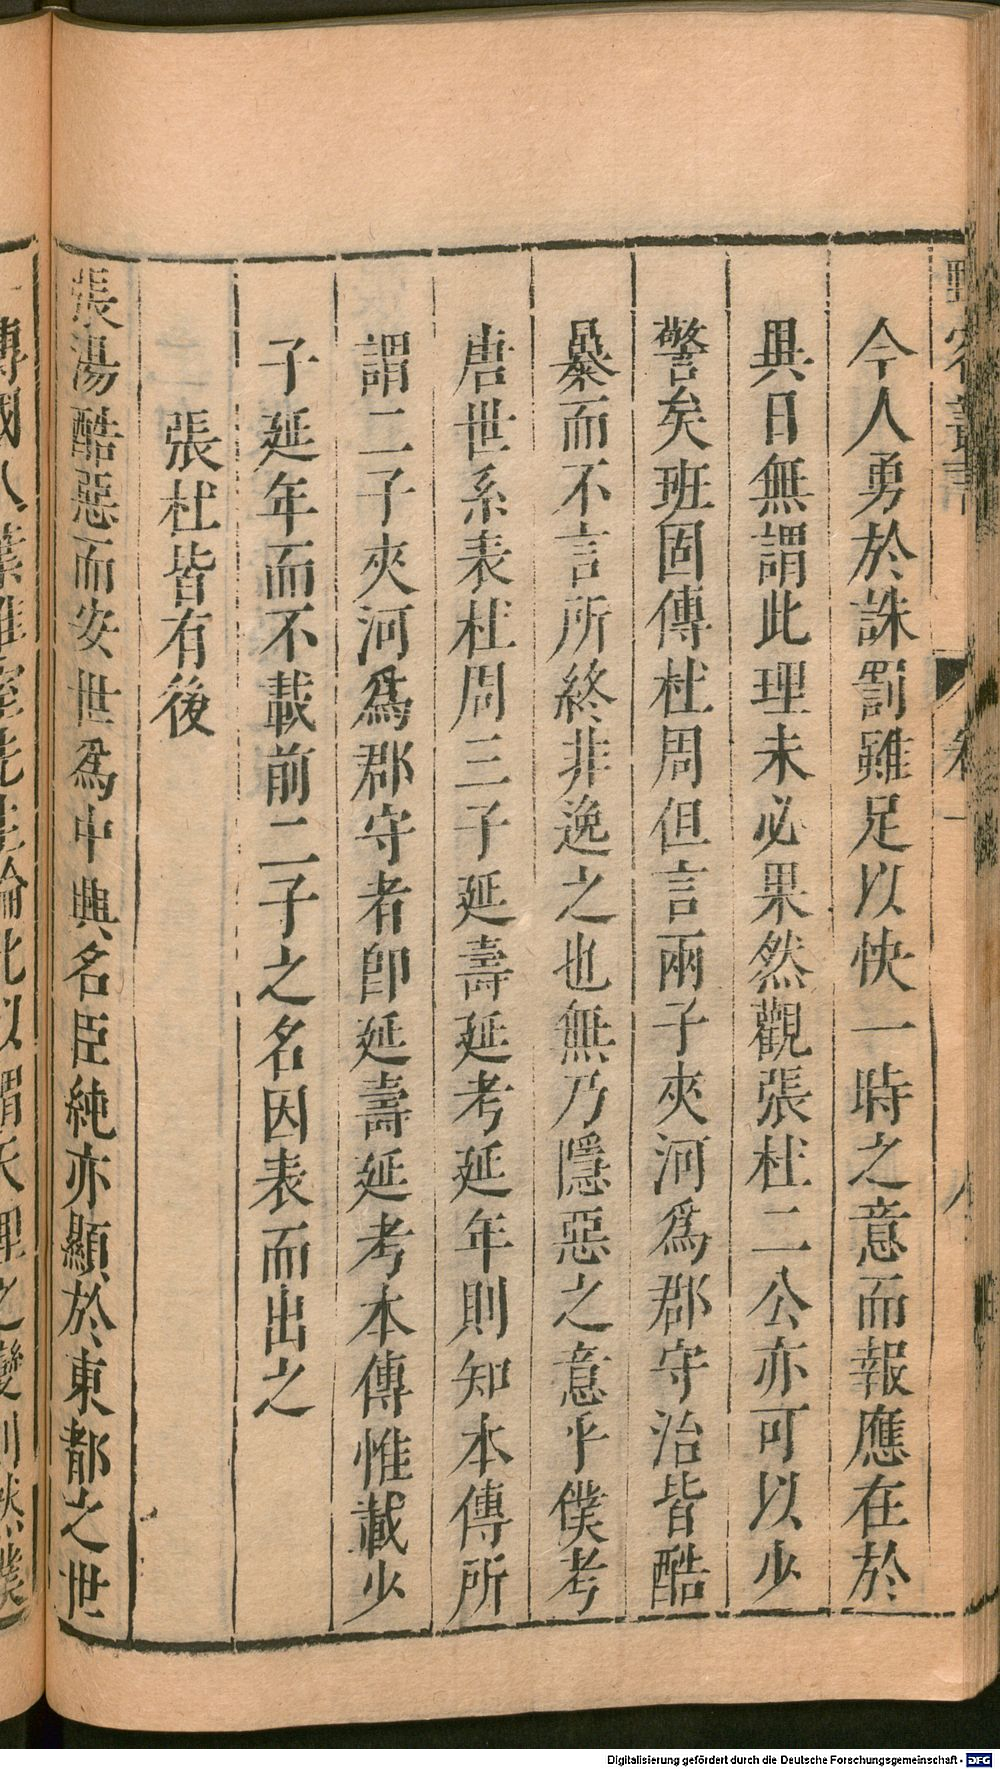 野客叢書 卷一 八
今人勇於誅罰雖足以快一時之意而報應在於
異日無謂此理未必果然觀張杜二公亦可以少
警矣班固傳杜周但言兩子夾河爲郡守治皆酷
暴而不言所終非逸之也無乃隱惡之意乎僕考
唐世系表杜周三子延壽延考延年則知本傳所
謂二子夾河爲郡守者卽延壽延考本傳惟載少
子延年而不載前二子之名因表而出之
張杜皆有後
張湯酷惡而安世爲中興名臣純亦顯於東都之世
傳國八葉雅室先生論此以謂天理之變則然僕
Digitalisierung gefördert durch die Deutsche Forschungsgemeinschaft - DFG